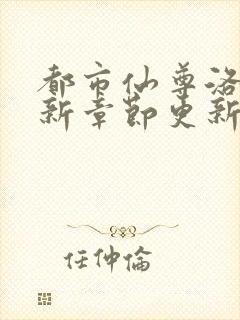 都市仙尊洛
新章節更新
任仲倫